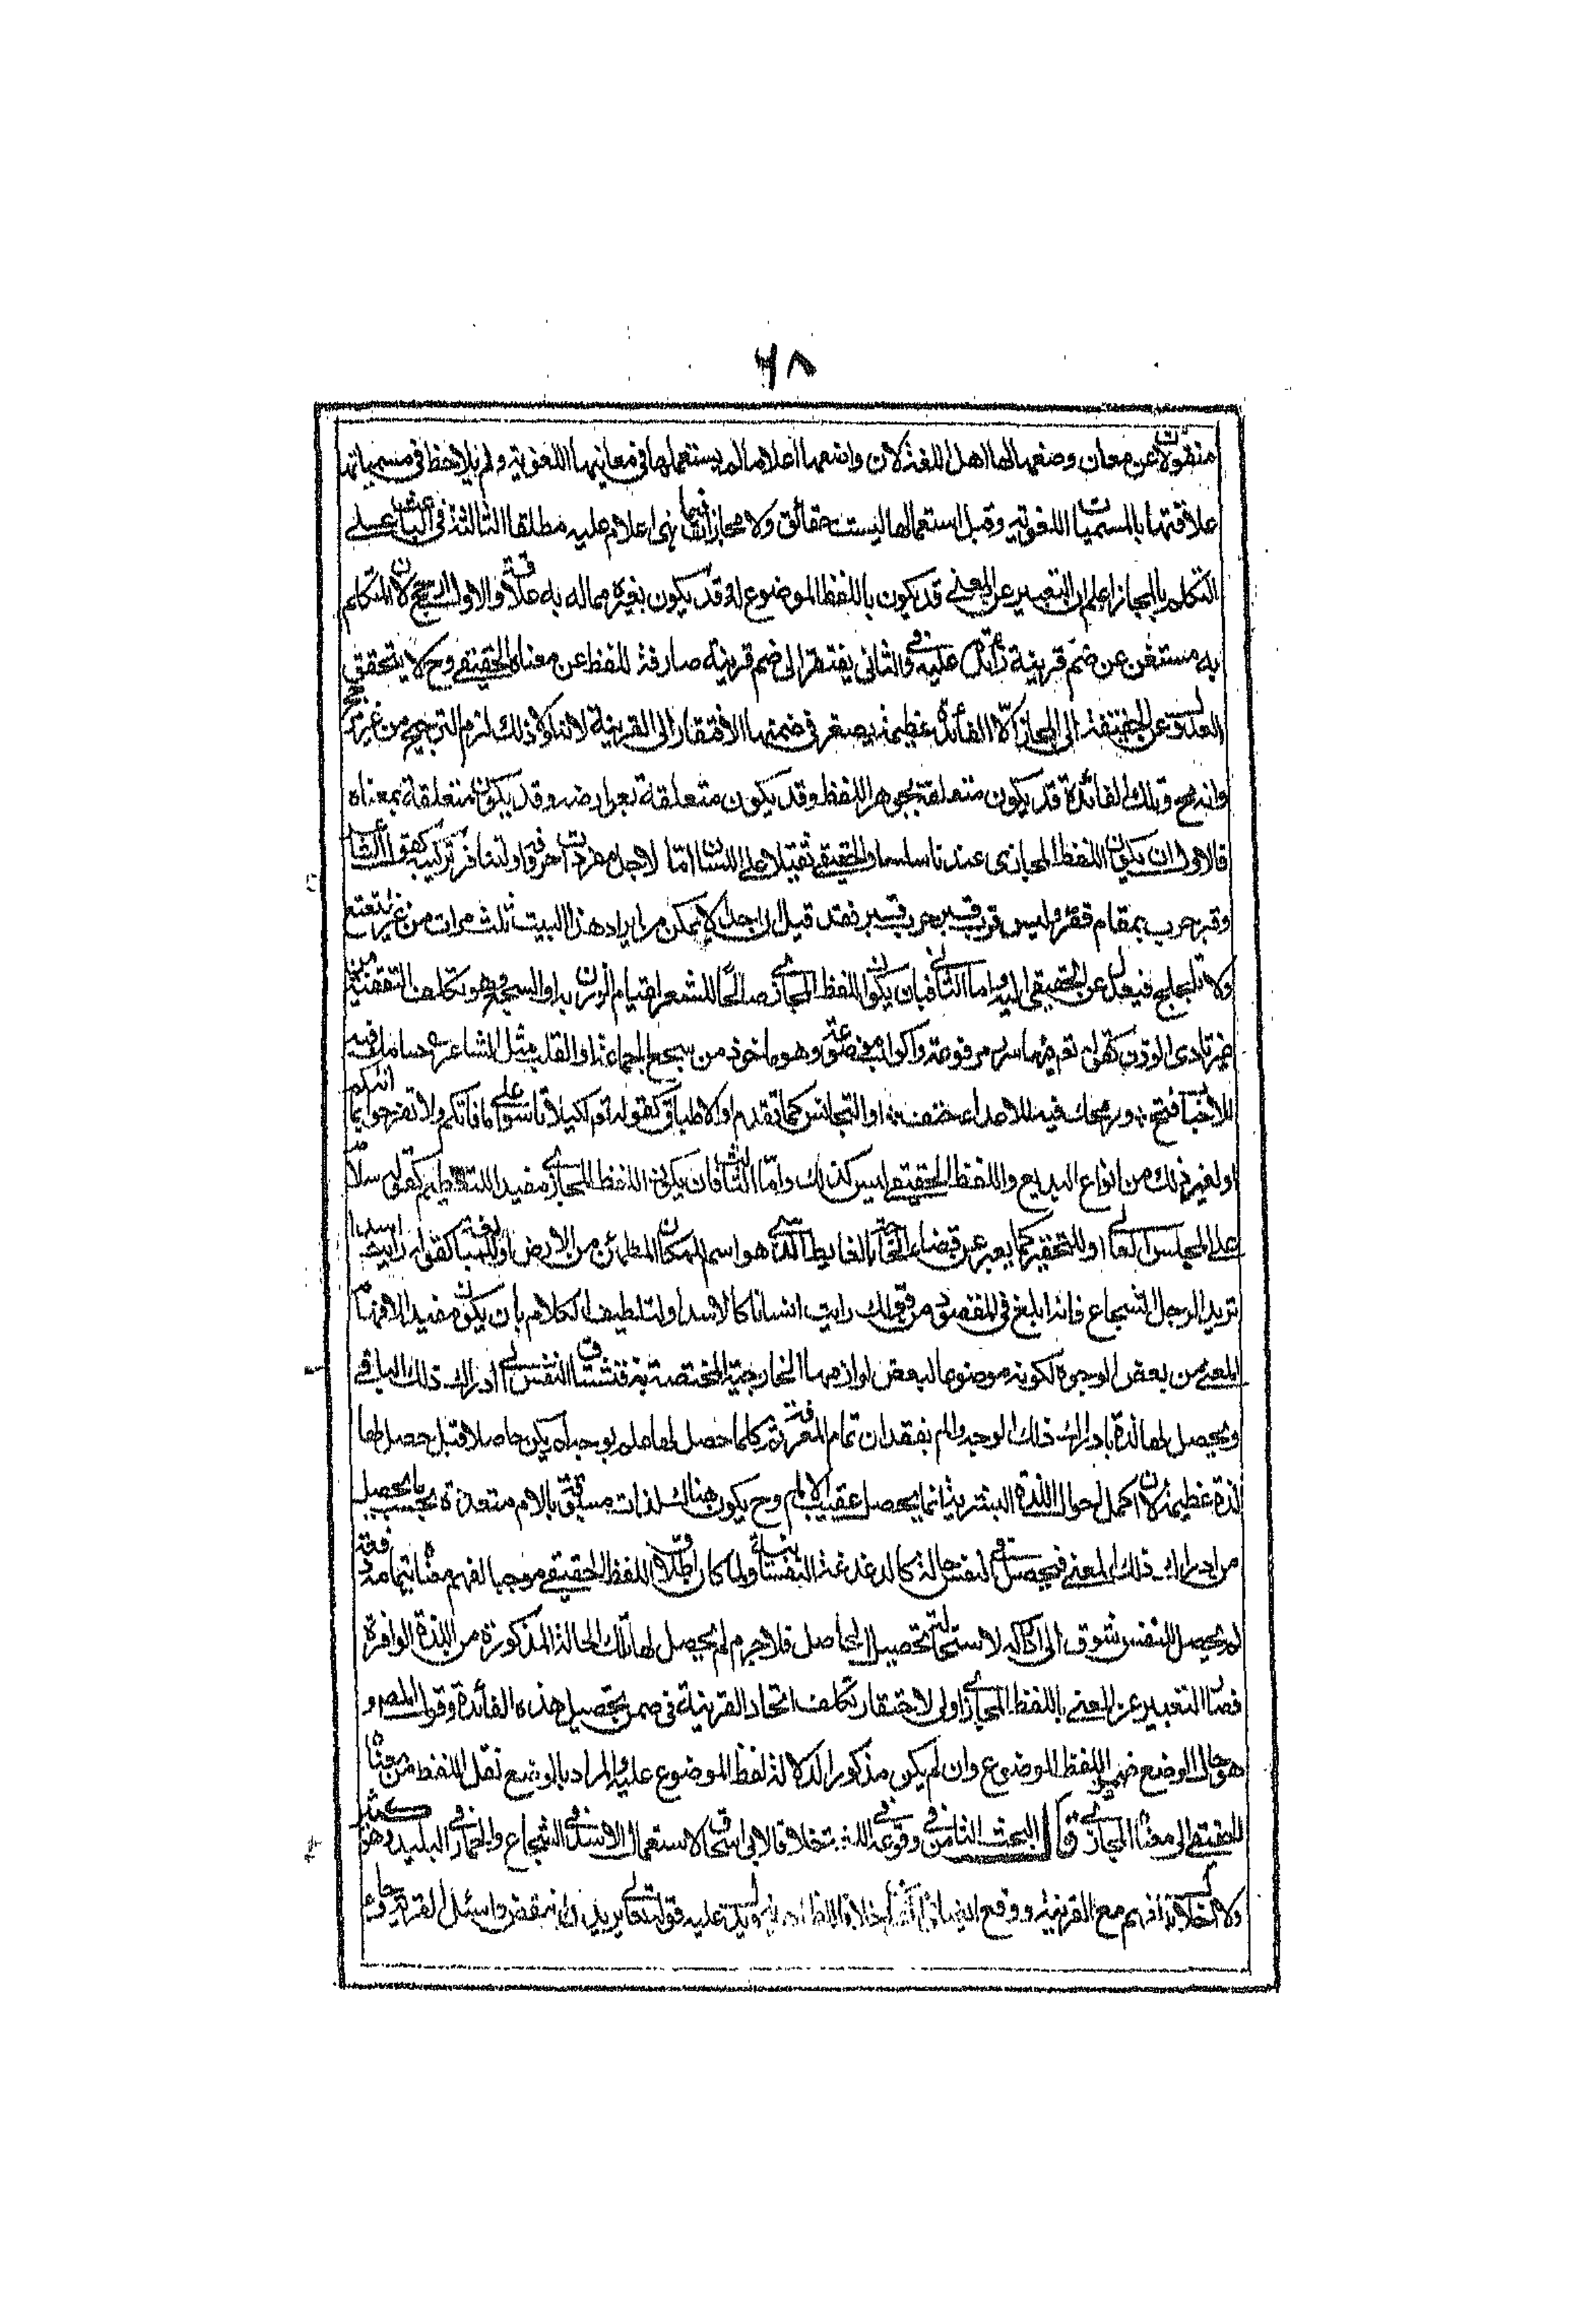 ٦٨
منقولا عن معان وضعها لها اهل اللغة لان واضعها اعلاما لم يستعملها فى معانيها اللغوية ولم يلاحظ فى مسمياتها
علاقتها بالمسميات اللغوية وقبل استعمالها ليست حقائق ولا مجازات فهى اعلام عليه مطلقا الثالثة فى الباعث على
التكلم بالمجاز اعلم ان التعبير عن المعنى قد يكون باللفظ الموضوع له وقد يكون بغيره مما له به علاقة والاول ارجح لان المتكلم
به مستغن عن ضم قرينة زائدة عليه والثانى يفتقر الى ضم قرينة صارفة للفظ عن معناه الحقيقى وح لا يتحقق
العدول عن الحقيقة الى المجاز الا لفائدة عظيمة يصغر فى ضمنها الافتقار الى القرينة لانه لولا ذلك لزم الترجيح من غير مرجح
وانه مح وتلك الفائدة قد يكون متعلقة بجوهر اللفظ وقد يكون متعلقة بعوارضه وقد يكون متعلقة بمعناه
فالاول ان يكون اللفظ المجازى عذبا سلسا والحقيقى ثقيلا على اللسان اما لاجل مفردات حروفه او لتنافر تركيبه كقول الشا
وقبر حرب بمقام قفر وليس قرب قبر حرب قبر فقد قيل ان احدا لا يمكن من ايراد هذا البيت ثلث مرات من غير تتعتع
ولا تلجلج فيعدل عن الحقيقى اليه واما الثانى فبان يكون اللفظ المجازى صالحا للشعر لقيام الوزن به او السجع وهو تكلف التقفية من
غير تادى الوزن كقوله تع فيها سرر مرفوعة واكواب موضوعة وهو ماخوذ من سجع الحمامة او القلب مثل الشاعر حسامك فيه
للاحباب فتح ورمحك فيه للاعداء حتف او التجانس كما تقدم او الاطباق كقوله تع لكيلا تاسوا على ما فاتكم ولا تفرحوا بما اتيكم
او لغير ذلك من انواع البديع واللفظ الحقيقى ليس كذلك واما الثالث فان يكون اللفظ المجازى مفيدا للتعظيم كقوله سلام
على المجلس العالى او للتحقير كما يعبر عن قضاء الحاجة بالغايط الذى هو اسم للمكان المطمئن من الارض او للمبالغة كقوله رايت اسدا
تريد الرجل الشجاع فانه ابلغ فى المقصود من قولك رايت انسانا كالاسد او لتلطيف الكلام بان يكون مفيدا لافهام
المعنى من بعض الوجوه لكونه موضوعا لبعض لوازمها الخارجية المختصة به فتشتاق النفس الى ادراك ذلك الباقى
ويحصل لها لذة بادراك ذلك الوجه والم بفقدان تمام المعرفة وكلما حصل لها علم بوجه لم يكن حاصلا قبل حصل لها
لذة عظيمة لان اكمل احوال اللذة البشرية انما يحصل عقيب الالم وح يكون هناك لذات مسبوقة بالام متعددة بحسب ما يحصل
من ادراك ذلك المعنى فيحصل للنفس حالة كالدغدغة النفسانية ولما كان اطلاق اللفظ الحقيقى موجبا لفهم معناه بتمامه دفعة
لم يحصل للنفس شوق الى اكماله لاستحالة تحصيل الحاصل فلا جرم لم يحصل لها تلك الحالة المذكورة من اللذة الوافرة
فصار التعبير عن المعنى باللفظ المجازى اولى لاحتقار تكلف اتخاذ القرينة فى ضمن تحصيل هذه الفائدة وقول المصر و
هو حال الوضع ضمير اللفظ الموضوع وان لم يكن مذكورا لدلالة لفظ الموضوع عليه والمراد بالوضع نقل اللفظ من معناه
الحقيقى الى معناه المجازى قال البحث الثامن فى وقوعه فى اللغة خلافا لابى اسحاق لاستعمال الاسد فى الشجاع والحمار فى البليد وهو كثير
ولا اخلال اذ افهم مع القرينة ووقع ايضا فى القران خلافا للظاهرية ويدل عليه قوله تعالى يريد ان ينقض واسئل القرية وجاء